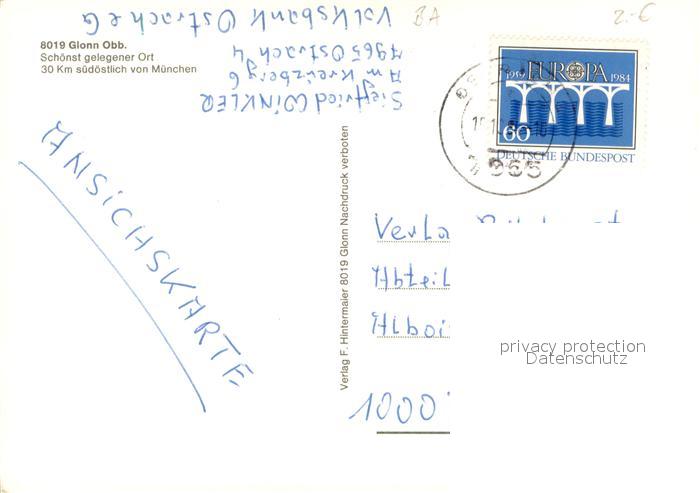 8019 Glonn Obb.
Schönst gelegener Ort
30 Km südöstlich von München
Siegfried WINKLER
Am Kreuzberg 6
7965 Ostrach 4
Volksbank Ostrach eG
BA
2.-€
1949 EUROPA 1984
60
DEUTSCHE BUNDESPOST
7965
ANSICHSKARTE
Verlag F. Hintermaier 8019 Glonn Nachdruck verboten
Verla
Abteil
Alboi
1000
privacy protection
Datenschutz